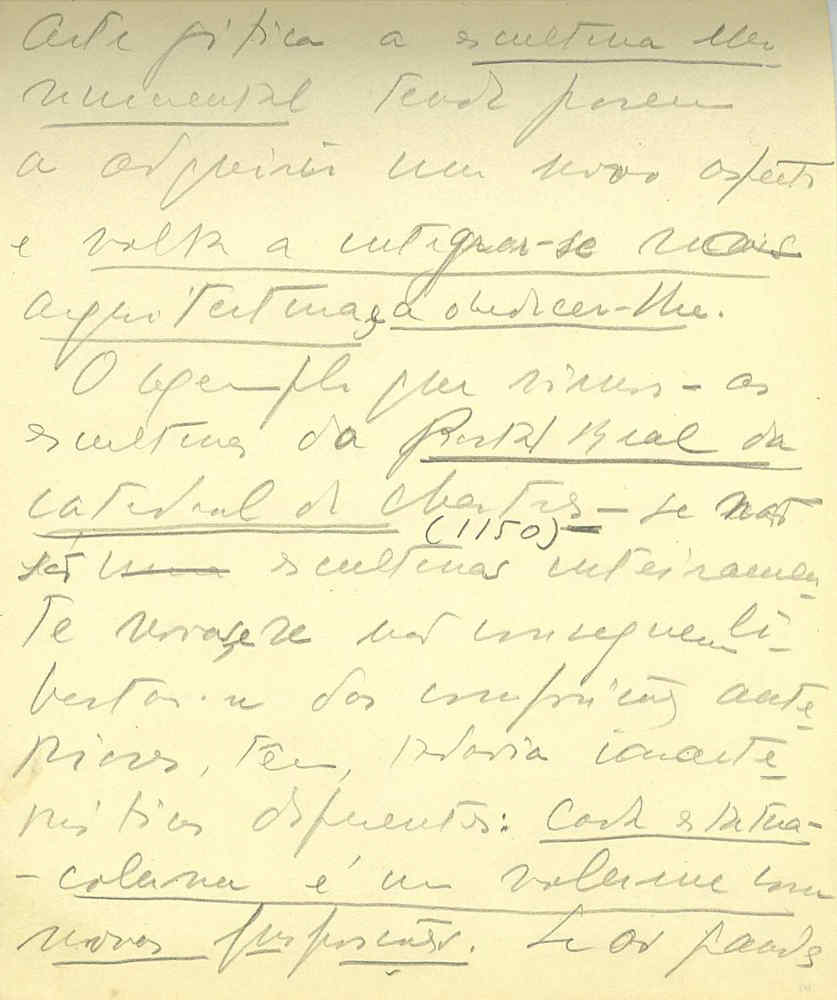 Arte gótica a escultura mo-
numental tende porem
a adquirir um novo aspecto
e volta a integrar-se na
arquitectura e a obedecer-lhe.
O exemplo que vimos - as
esculturas da Portal Real da
catedral de Chartres - se não
(1150)
são uma esculturas inteiramen-
te novas, e se não conseguem li-
bertar-se das anterio-
res, têm, todavia caracte-
rísticas diferentes: Cada estátua-
-coluna é um volume com
novas proporções. Se os panos